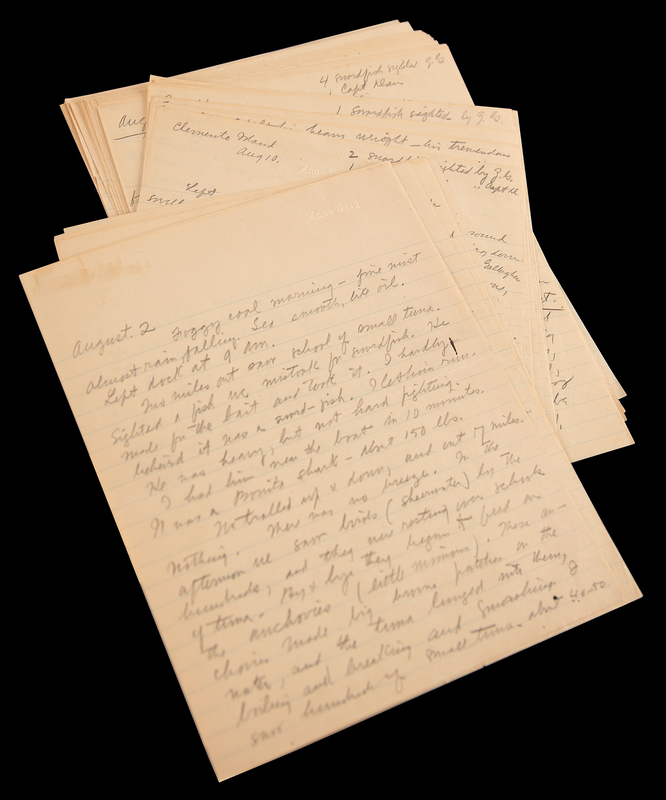 4 swordfish sighted Z.G.
1 Capt Dan
1 swordfish sighted by Z.G.
Aug
heavy weight – his tremendous
Clemente Island
Aug 10.
2 sighted by Z.G.
" Capt D
Left
small
sound
down
Gallagher
Zane Grey
August. 2 Foggy cool morning – fine mist
almost rain falling. Sea smooth, like oil.
Left dock at 9 am.
Two miles out saw school of small tuna.
Sighted a fish we mistook for swordfish. He
made for the bait and took it. I hardly
believed it was a sword-fish. I let him run.
He was heavy, but not hard fighting.
I had him near the boat in 10 minutes.
It was a Bonito shark – about 150 lbs.
We trolled up & down, and out 7 miles.
Nothing. There was no breeze. In the
afternoon we saw birds (shearwater) by the
hundreds, and they were resting over schools
of tuna. By & bye they began to feed on
the anchovies (little minnows). These an-
chovies made big brown patches on the
water, and the tuna lunged into them,
boiling and breaking and smashing. I
saw hundreds of small tuna. about 40-50.